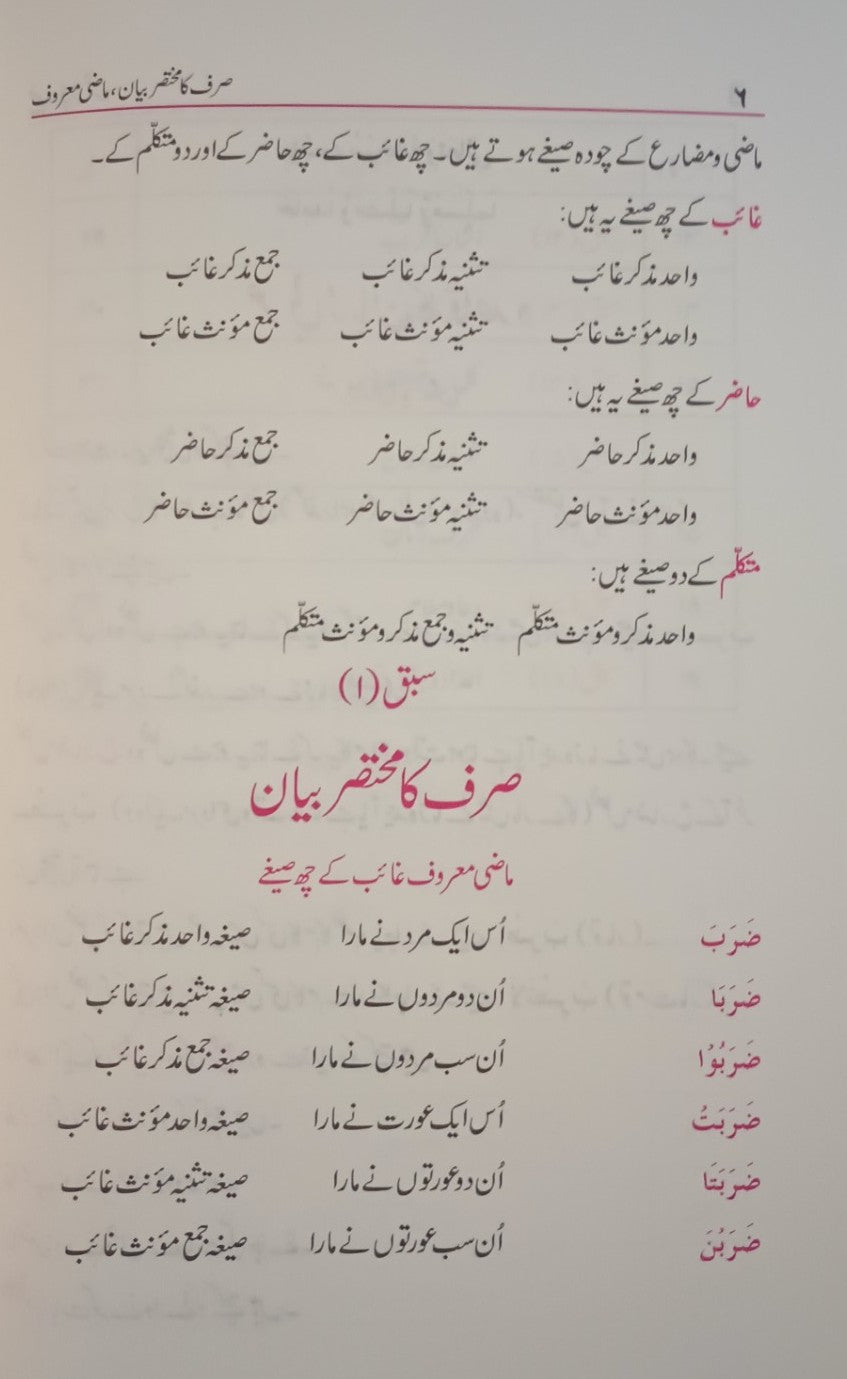 ۶ صرف کا مختصر بیان، ماضی معروف
ماضی و مضارع کے چودہ صیغے ہوتے ہیں۔ چھ غائب کے، چھ حاضر کے اور دو متکلّم کے۔
غائب کے چھ صیغے یہ ہیں:
واحد مذکر غائب تثنیہ مذکر غائب جمع مذکر غائب
واحد مؤنث غائب تثنیہ مؤنث غائب جمع مؤنث غائب
حاضر کے چھ صیغے یہ ہیں:
واحد مذکر حاضر تثنیہ مذکر حاضر جمع مذکر حاضر
واحد مؤنث حاضر تثنیہ مؤنث حاضر جمع مؤنث حاضر
متکلّم کے دو صیغے ہیں:
واحد مذکر و مؤنث متکلّم تثنیہ و جمع مذکر و مؤنث متکلّم
سبق (۱)
صرف کا مختصر بیان
ماضی معروف غائب کے چھ صیغے
ضَرَبَ اُس ایک مرد نے مارا صیغہ واحد مذکر غائب
ضَرَبَا اُن دو مردوں نے مارا صیغہ تثنیہ مذکر غائب
ضَرَبُوْا اُن سب مردوں نے مارا صیغہ جمع مذکر غائب
ضَرَبَتْ اُس ایک عورت نے مارا صیغہ واحد مؤنث غائب
ضَرَبَتَا اُن دو عورتوں نے مارا صیغہ تثنیہ مؤنث غائب
ضَرَبْنَ اُن سب عورتوں نے مارا صیغہ جمع مؤنث غائب